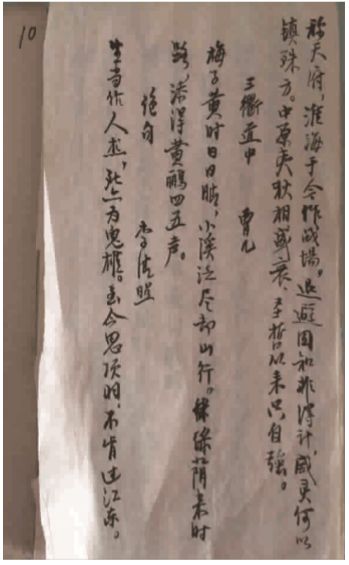 10
称天府,淮海于今作战场。退避固知非得计,威灵何以
镇殊方。中原夷狄相盛衰,圣哲以来只自强。
三衢道中 曾几
梅子黄时日日晴,小溪泛尽却山行。绿绿荫来时
路,添得黄鹂四五声。
绝句 李清照
生当作人杰,死亦为鬼雄。至今思项羽,不肯过江东。